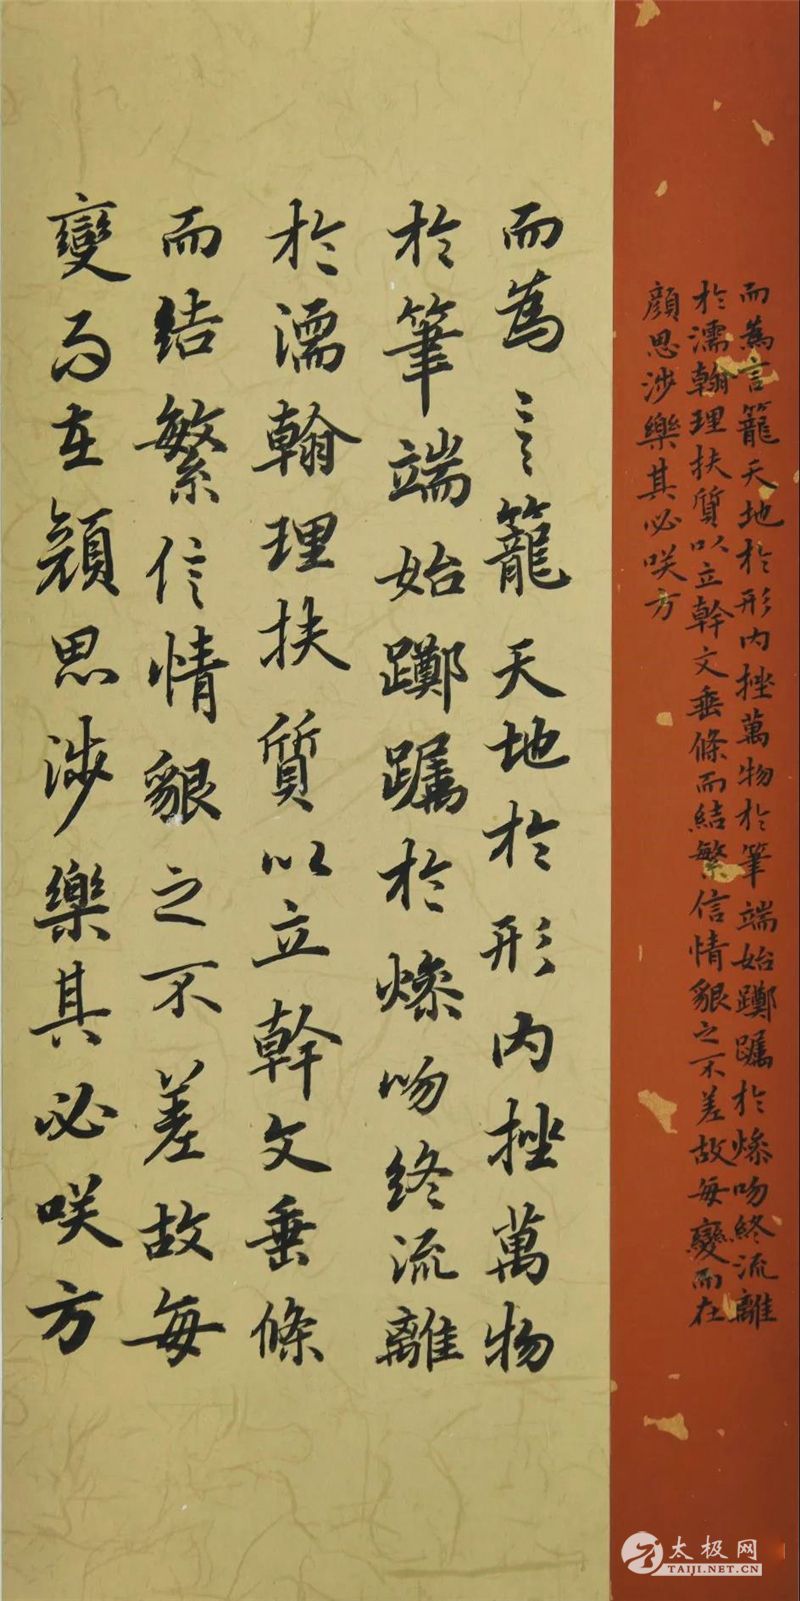 而為言籠天地於形內挫萬物於筆端始躑躅於燥吻終流離
於濡翰理扶質以立幹文垂條而結繁信情貌之不差故每變而在
顔思涉樂其必咲方
而為言籠天地於形內挫萬物
於筆端始躑躅於燥吻終流離
於濡翰理扶質以立幹文垂條
而結繁信情貌之不差故每
變而在顔思涉樂其必咲方
太极网
TAIJI.NET.CN